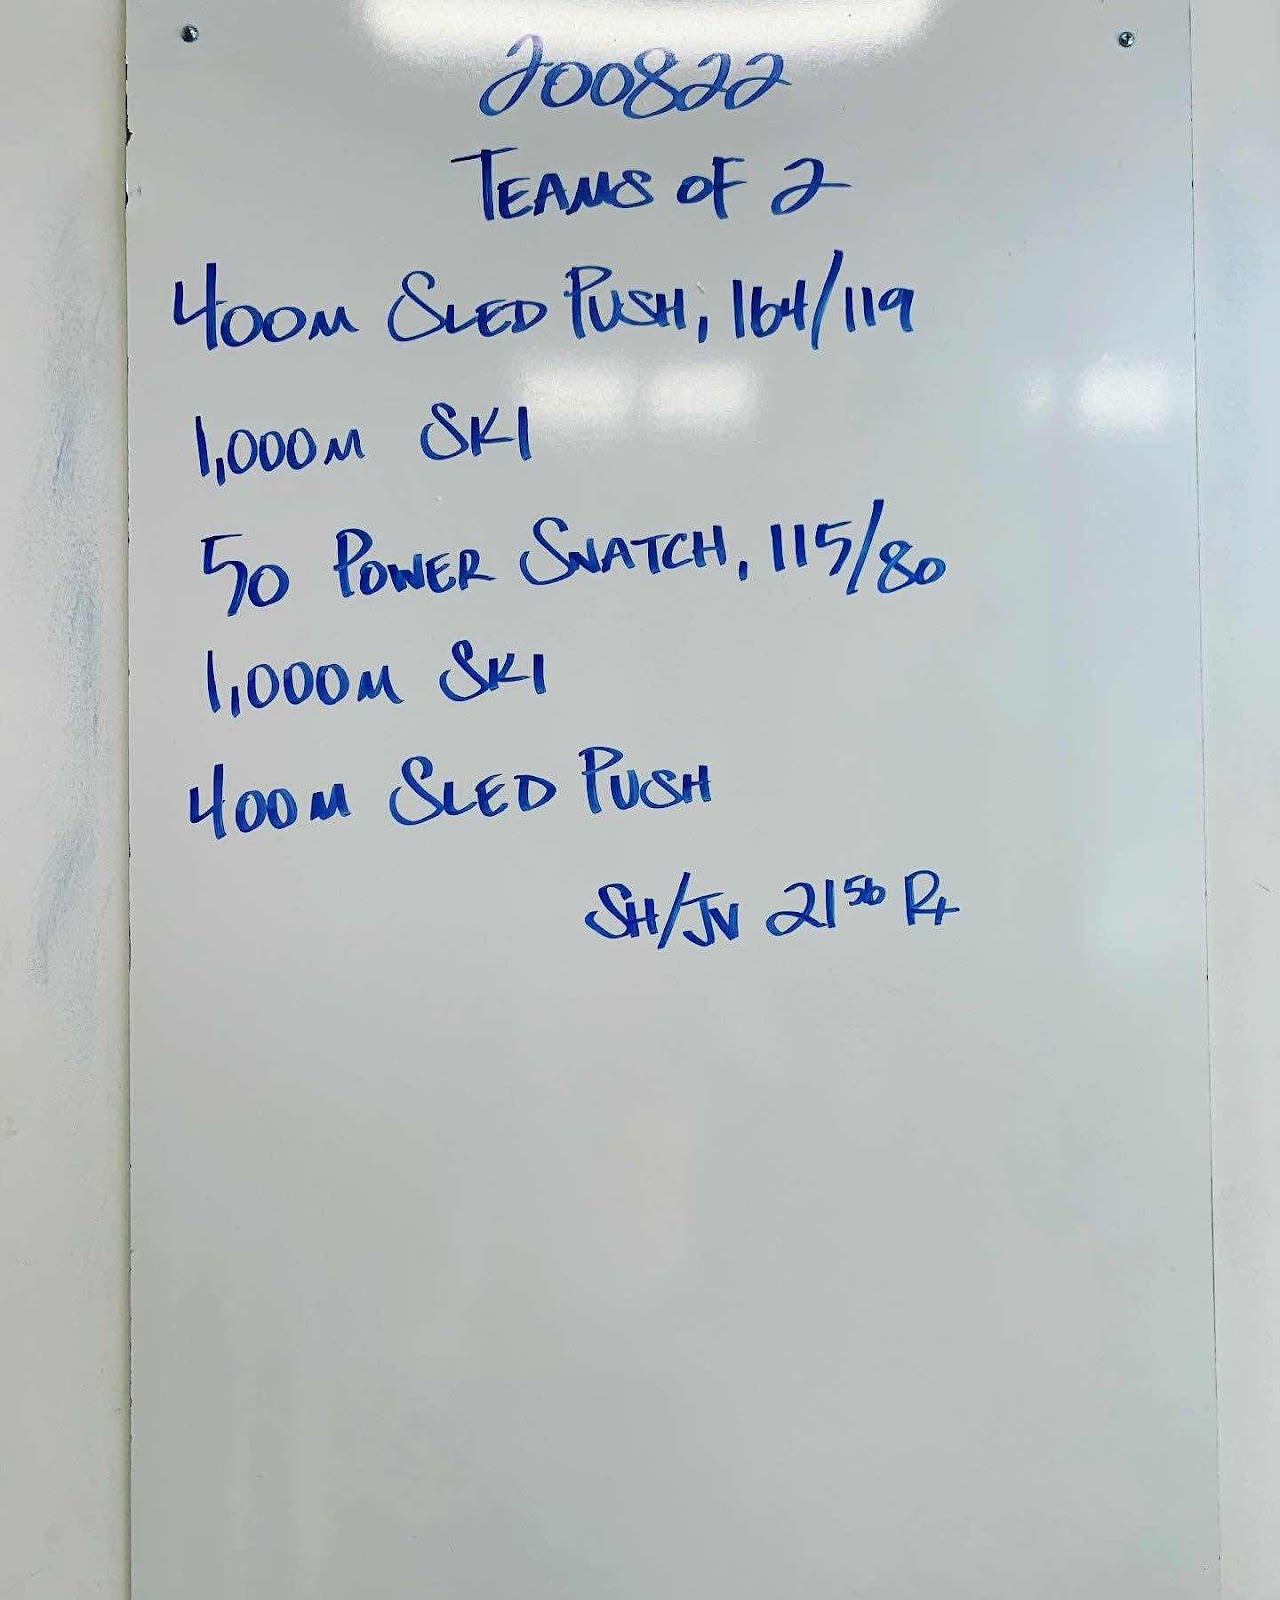 200822
TEAMS OF 2
400M SLED PUSH, 164/119
1,000M SKI
50 POWER SNATCH, 115/80
1,000M SKI
400M SLED PUSH
SH/JV 21⁵⁶ Rx